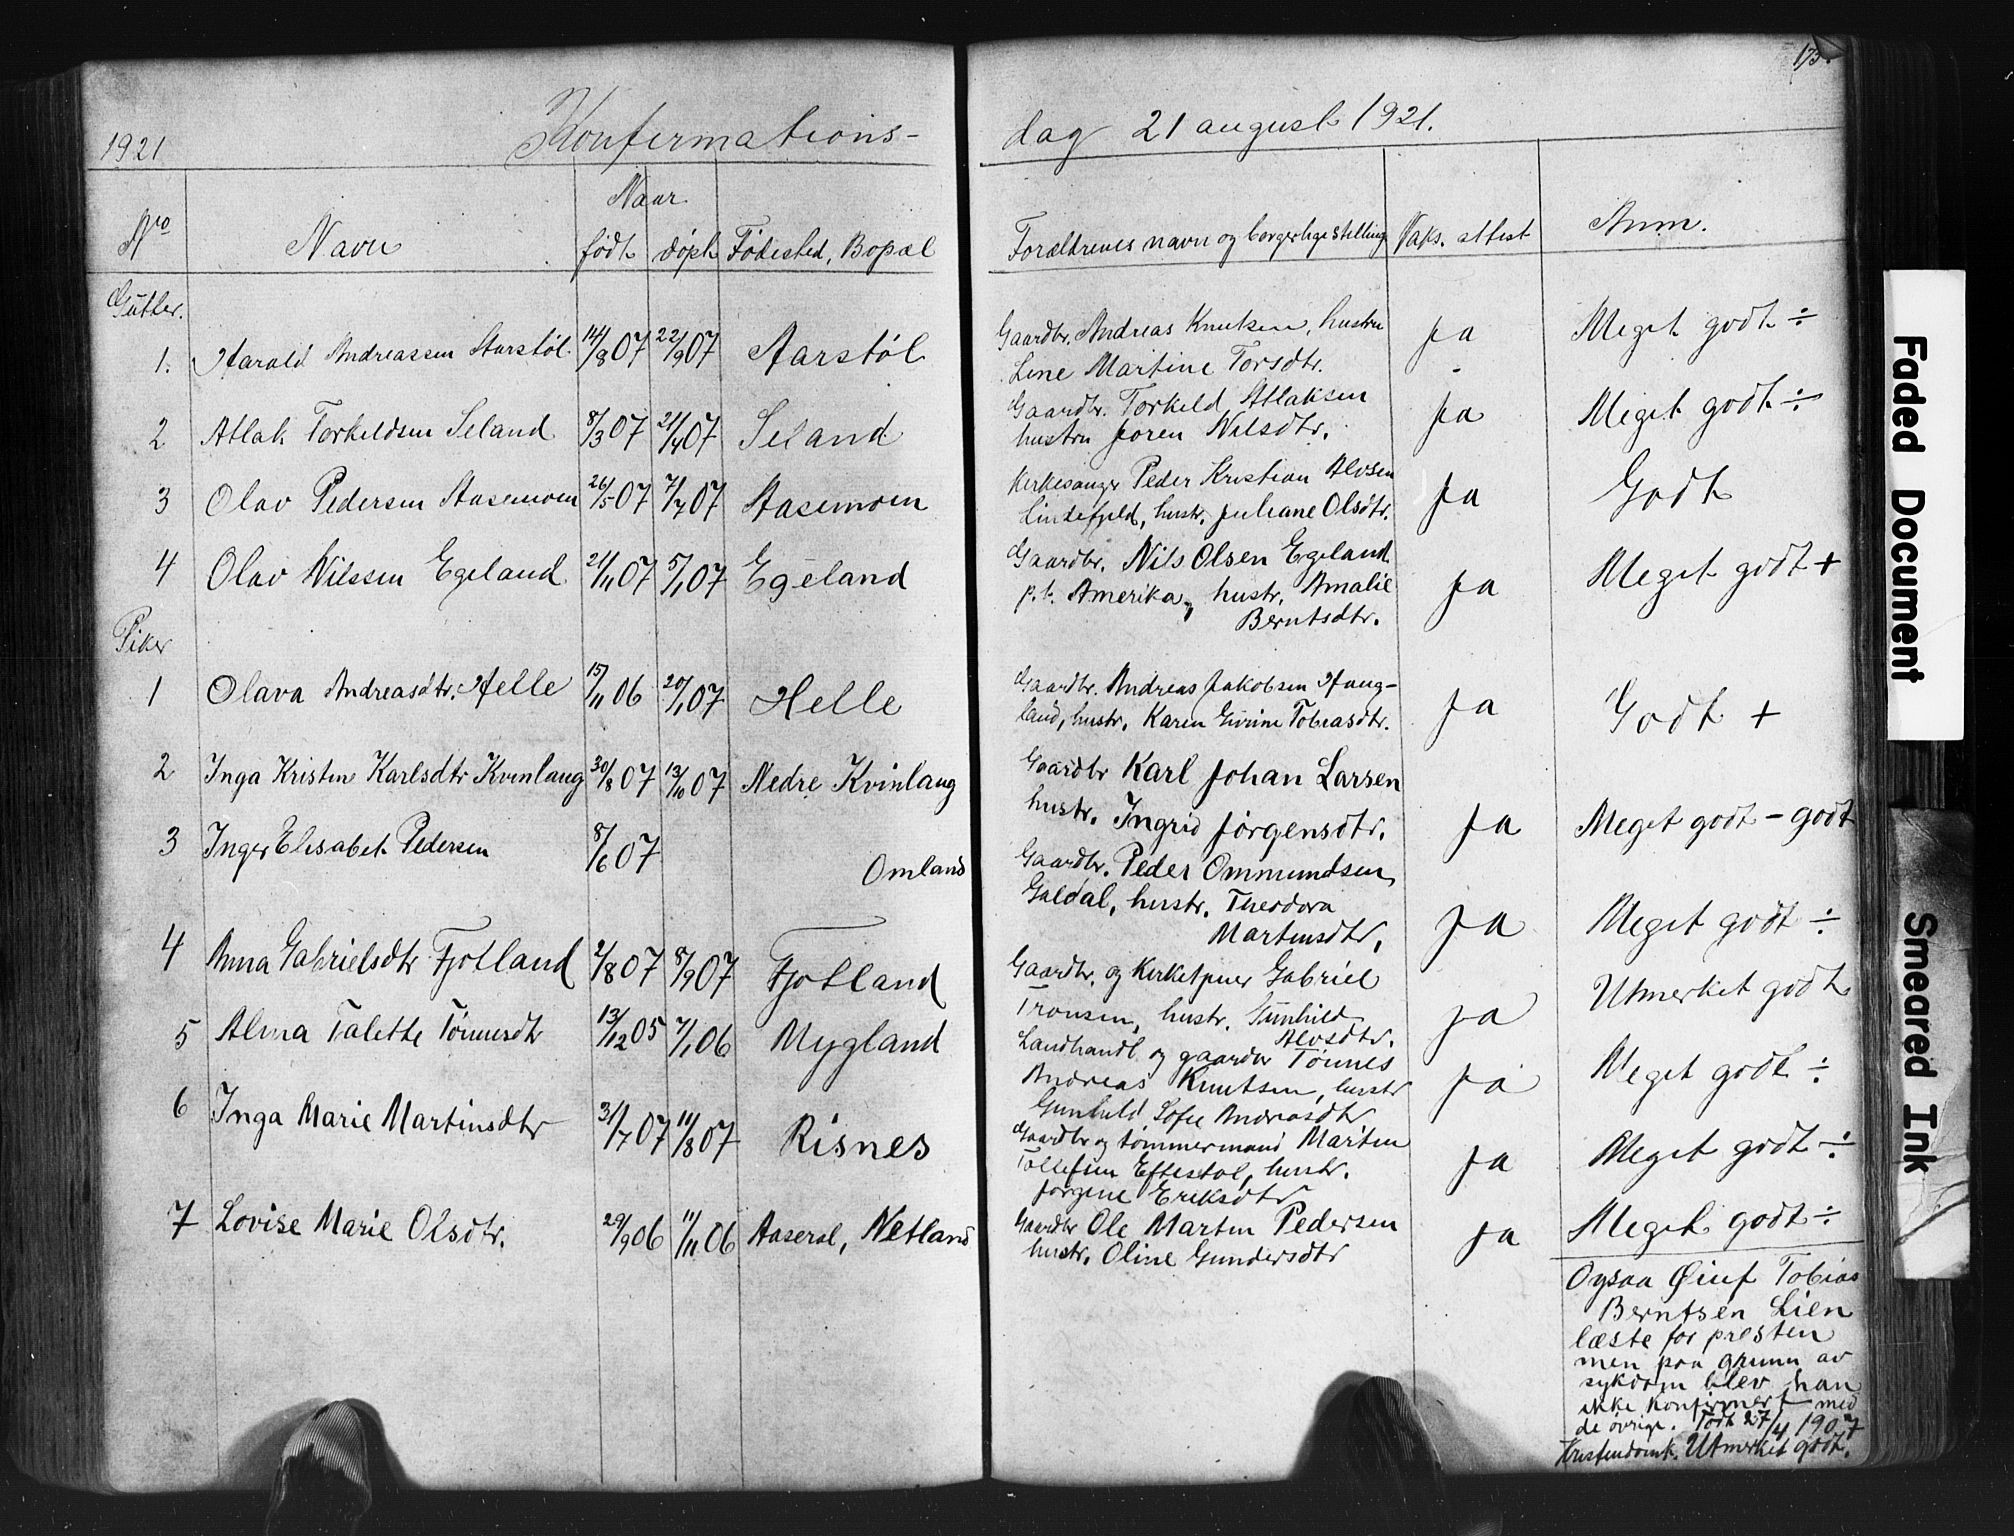 173.
1921 Konfirmations- dag 21 august 1921.
Nro Navn Naar født døpt Fødested, Bopæl Forældrenes navn og borgerlige stilling Vaks. attest Anm.
Gutter.
1. Harald Andreassen Aarstøl 14/8 07 22/9 07 Aarstøl Gaardbr. Andreas Knutsen, hustru Ja Meget godt ÷
Line Martine Torsdtr.
2 Atlak Torkeldsen Seland 8/3 07 21/4 07 Seland Gaardbr. Torkeld Atlaksen Ja Meget godt ÷
hustru Joren Nilsdtr.
3 Olav Pedersen Aasemoen 26/5 07 7/7 07 Aasemoen Kirkesanger Peder Kristian Alvsen Ja Godt
Lindefjeld, hustr. Juliane Olsdtr.
4 Olav Nilssen Egeland 21/11 07 5/1 07 Egeland Gaardbr. Nils Olsen Egeland Ja Meget godt +
p.t. Amerika, hustr. Amalie
Berntsdtr.
Piker
1 Olava Andreasdtr. Helle 15/11 06 20/1 07 Helle Gaardbr. Andreas Jakobsen Haug- Ja Godt +
land, hustr. Karen Tobiasdtr.
2 Inga Kristine Karlsdtr Kvinlaug 30/8 07 13/10 07 Nedre Kvinlaug Gaardbr Karl Johan Larsen
hustr. Ingrid Jørgensdtr. Ja Meget godt - godt
3 Inger Elisabet Pedersen 8/6 07 Omland Gaardbr. Peder Ommundsen
Galdal, hustr. Theodora
Martinsdtr. Ja Meget godt ÷
4 Anna Gabrielsdtr Fjotland 2/8 07 8/9 07 Fjotland Gaardbr. og Kirketjener Gabriel
Tronsen, hustr. Gunhild Ja Utmerket godt
Alvsdtr.
5 Alma Talette Tønnesdtr 13/12 05 7/1 06 Mygland Landhandl. og gaardbr Tønnes
Andreas Knutsen, hustr Ja Meget godt ÷
Gunhild Sofie Andreasdtr
6 Inga Marie Martinsdtr 31/7 07 11/8 07 Risnes Gaardbr og tømmermand Martin
Tollefsen Eftestøl, hustr. Ja Meget godt ÷
Jørgine Eriksdtr
7 Lovise Marie Olsdtr. 29/9 06 11/11 06 Aaseral, Netland Gaardbr Ole Martin Pedersen Ja Meget godt ÷
hustr. Oline Gundersdtr
Ogsaa Tobias
Berntsen Lien
læste for presten
men paa grunn av
sykdom blev han
ikke konfirmert med
de øvrige. Født 27/4 1907
Kristendomsk. Utmerket godt.
Faded Document
Smeared Ink